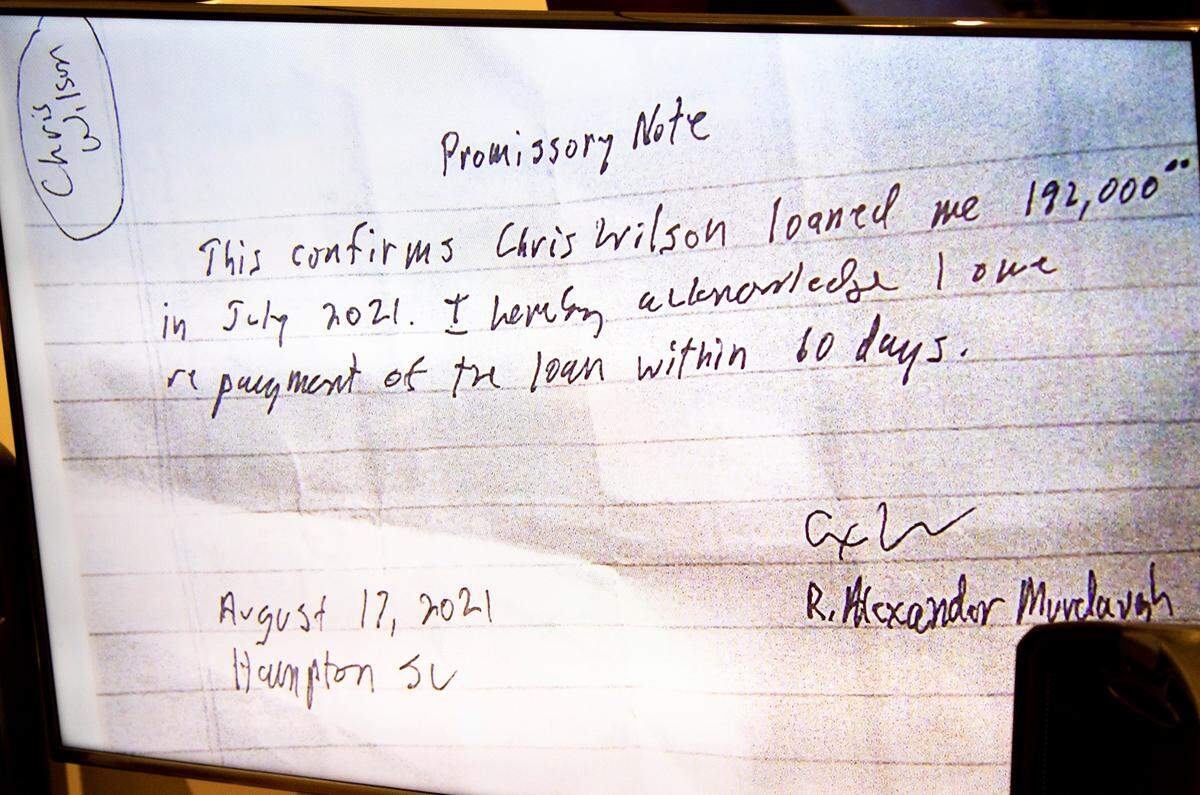 Chris
Wilson
Promissory Note
This confirms Chris Wilson loaned me 192,000°°
in July 2021. I hereby acknowledge I owe
repayment of the loan within 60 days.
R. Alexander Murdaugh
August 17, 2021
Hampton SC